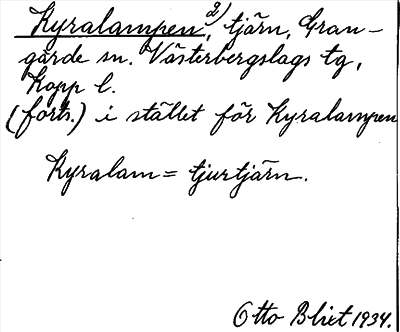 Kyralampen 2), tjärn, Gran-
gärde sn. Västerbergslags tg,
Kopp l.
(forts.) i stället för Kyralampen
Kyralam = tjurtjärn.
Otto Blixt 1934.